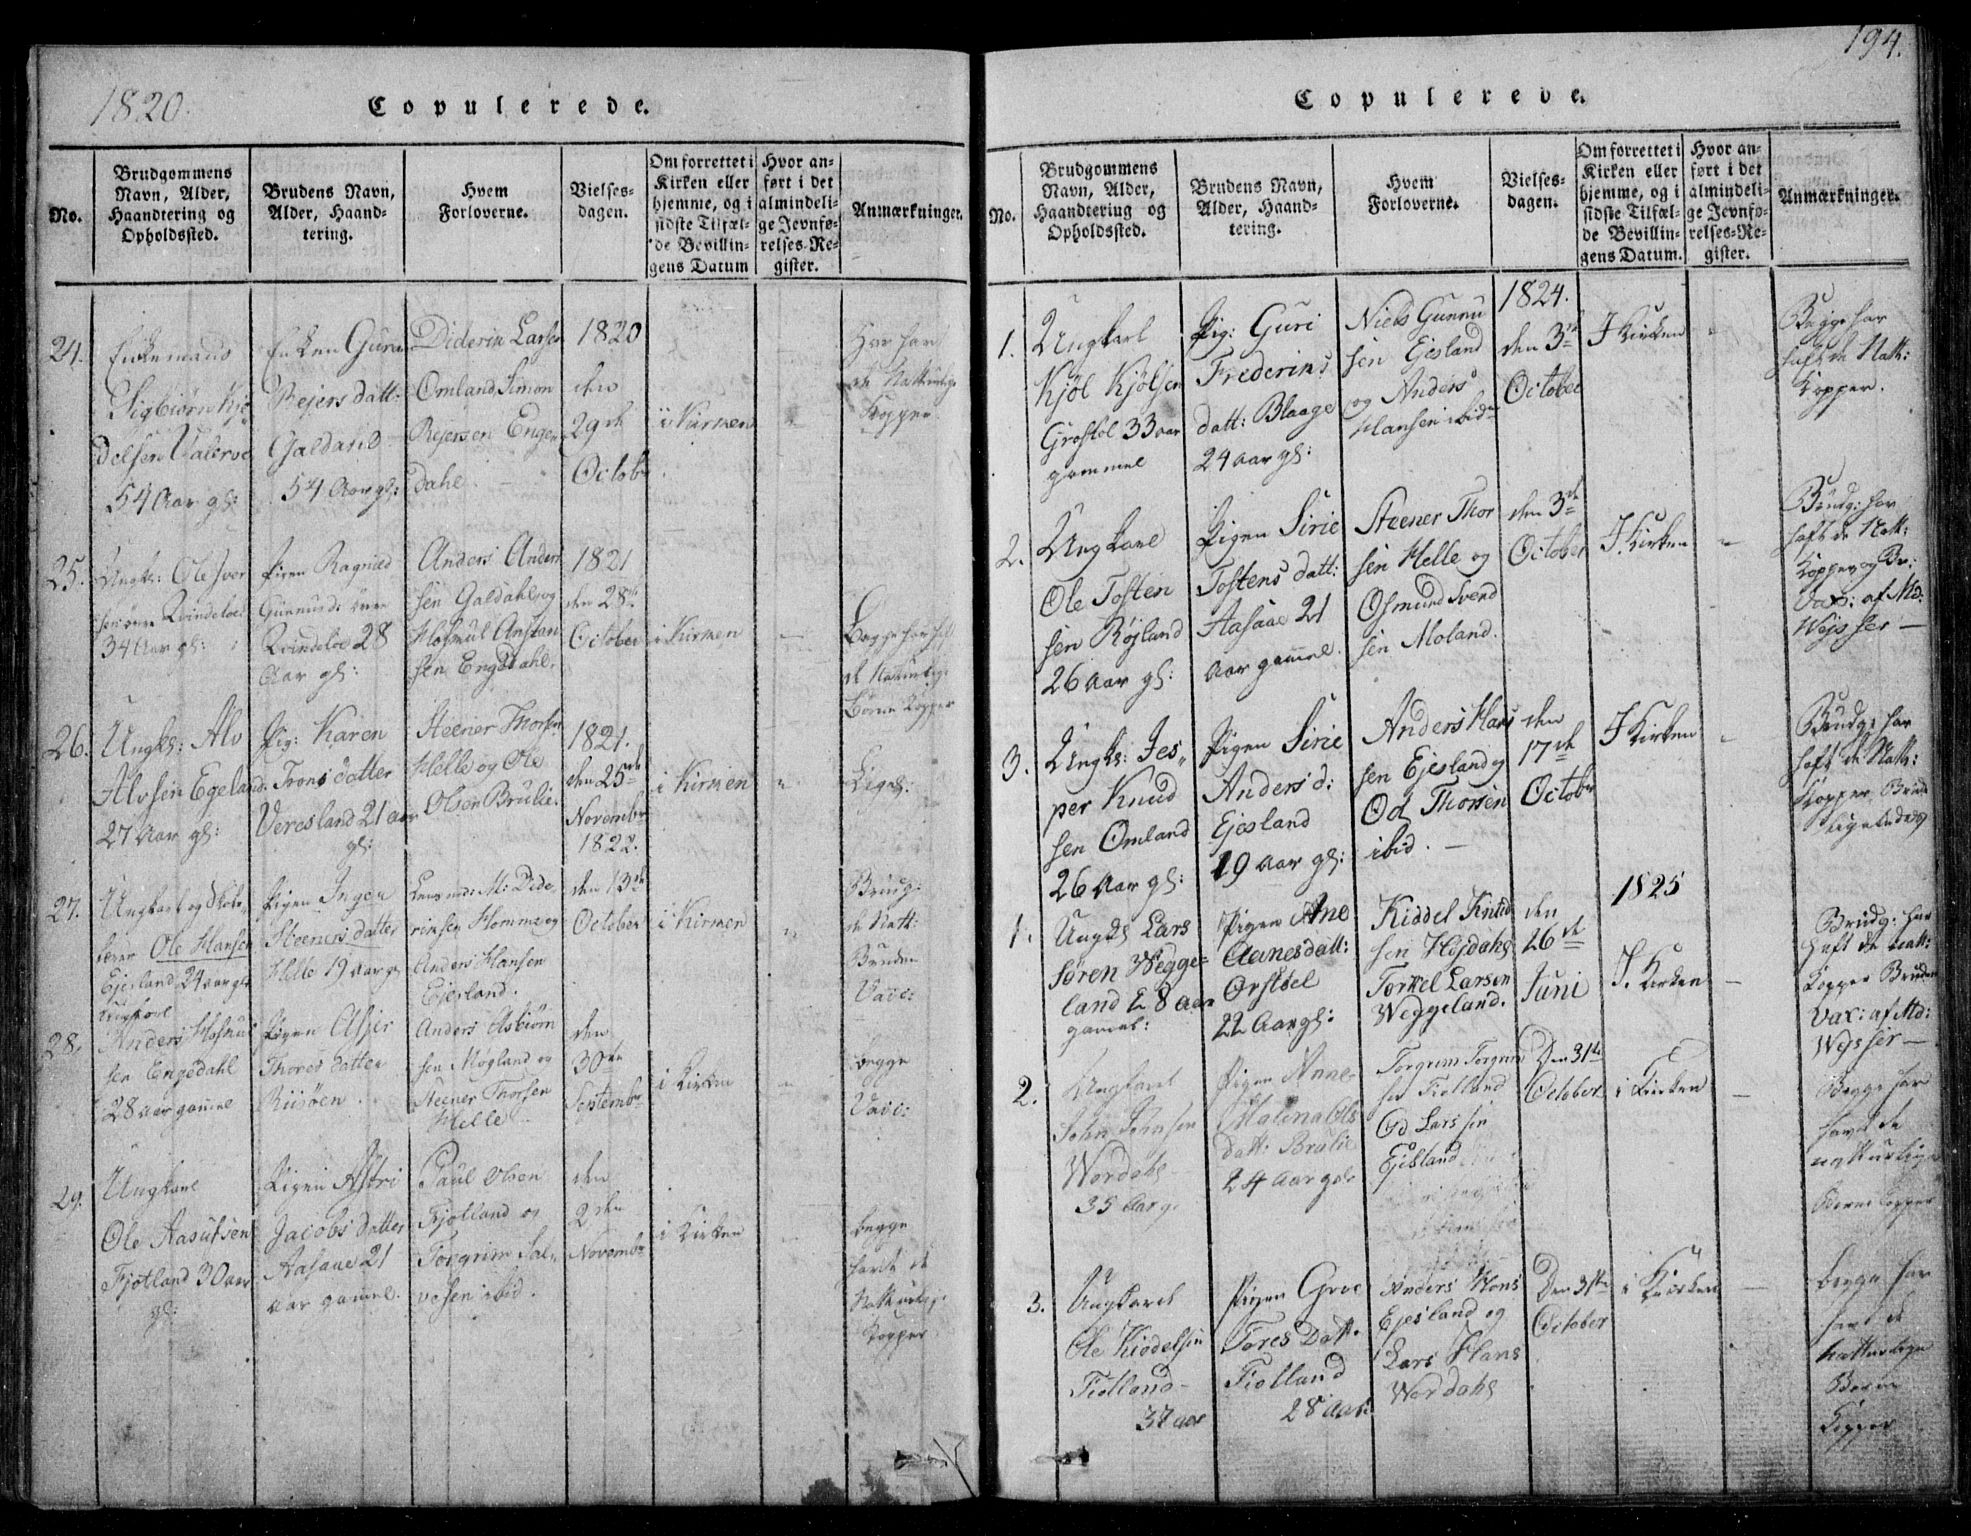 1820.
Copulerede.
No.
Brudgommens Navn, Alder, Haandtering og Opholdssted.
Brudens Navn, Alder, Haandtering.
Hvem Forloverne.
Vielses-dagen.
Om forrettet i Kirken eller hjemme, og i sidste Tilfælde Bevillingens Datum
Hvor anført i det almindelige Jevnførelses-Register.
Anmærkninger.
24.
Enkemand
Sigbiørn Kje
delsen Valerve
54 Aar gl:
Enken Guro
Rejers datt:
Galdahl
54 Aar gl:
Diderin Larsen
Omland, Simon
Rejersen Engen
dahl.
1820
den
29de
Octobr
i Kirken
Har hav
de Natturlige
Kopper
25.
Ungk: Ole Iver
sen Kvindeloe
34 Aar gl:
Pigen Ragnild
Gunnunds
Kvindeloe 28
Aar gl:
Anders Anders
sen Galdahl og
Aosmul Anstan
sen Engedahl.
1821
den 28de
October
i Kirken
Begge har haft
de Naturlig:
Børne Kopper
26.
Ungk: Alv
Alvsen Egeland
27 Aar gl:
Pig: Karen
Trons datter
Veresland 21 aar
gl:
Steener Thorsen
Helle og Ole
Olsen Brulie.
1821.
den 25de
Novembr
1822.
i Kirken
Ligel:
27.
Ungkarl og Skole
lærer Ole Hansen
Ejesland 24 aar gl:
Pigen Inger
Steeners datter
Helle 19 aar gl
Lensmd: M: Dide
rinsen Homme og
Anders Hansen
Ejesland.
den 13de
October
i Kirken
Brudg:
de Natt:
Bruden
Vacc:
28.
Ungkarl
Anders Aosmul
sen Engedahl
28 aar gamel
Pigen Asjer
Thores datter
Riisøen.
Anders Asbiørn
sen Møgland og
Steener Thorsen
Helle
den
30te
Septembr
i Kirken
begge
Vacc:
29.
Ungkarl
Ole Aasulfsen
Fjotland 30 aar
gl:
Pigen Astri
Jacobs datter
Aasaae 21
aar gamel.
Paul Olsen
Fjotland og
Torgrim Sal-
vesen ibid.
den
2den
Novembr
i Kirken
begge
havt de
Natturlig:
Kopper
194.
Copulerede.
No.
Brudgommens Navn, Alder, Haandtering og Opholdssted.
Brudens Navn, Alder, Haandtering.
Hvem Forloverne.
Vielses-dagen.
Om forrettet i Kirken eller hjemme, og i sidste Tilfælde Bevillingens Datum.
Hvor anført i det almindelige Jevnførelses-Register.
Anmærkninger.
1.
Ungkarl
Kjøl Kjølsen
Grostøl 33 aar
gammel
Pig: Guri
Frederins
datt: Blaage
24 aar gl:
Niels Gunnu
sen Ejesland
og Anders
Hansen ibidm
1824.
den 3de
October
I Kirken
Begge har
haft de Natt:
Kopper.
2.
Ungkarl
Ole Tosten
sen Røjland
26 Aar gl:
Pigen Sirie
Tostens datt:
Aasaae 21
aar gamel.
Steener Thor
sen Helle og
Osmund Svend
sen Moland.
den 3de
October
I Kirken
Brudg: har
haft de Natt:
Kopper og Br:
Vax: af Md:
Wejsser
3.
Ungk: Jes-
per Knud
sen Omland
26 Aar gl:
Pigen Sirie
Anders d:
Ejesland
19 aar gl:
Anders Hans
sen Ejesland og
Od Thorsen
ibid.
den
17de
October
I Kirken
Brudg: har
haft de Natt:
Kopper Brud
ligeledes
1825
1.
Ungk Lars
Søren Wegge-
land 28 aar
gamel:
Pigen Ane
Aanes datt:
Ørstøel
22 Aar gl:
Kiddel Knud
sen Højdahl
Torkel Larsen
Weggeland.
den
26de
Juni
I Kirken
Brudg: har
haft de natt:
Kopper Bruden
Vax: af Md:
Wejsser
2.
Ungkarl
John Jonsen
Wordahl
35 Aar g.
Pigen Anne
Malena Ols
datt: Brulie
24 Aar gl:
Torgrim Torgrim
sen Fiotland
Od Larssen
Ejesland
Den 31te
October
i Kirken
Begge har
havt de
natturlige
Børne Kopper
3.
Ungkarl
Ole Kiddelsen
Fiotland
37 aar
Pigen Groe
Tores Datt.
Fiotland
28 Aar
Anders Hans
Ejesland og
Lars Hans
Wordahl
Den 31te
October
i Kirken
begge har
havt de
natturlige
Børne
Kopper